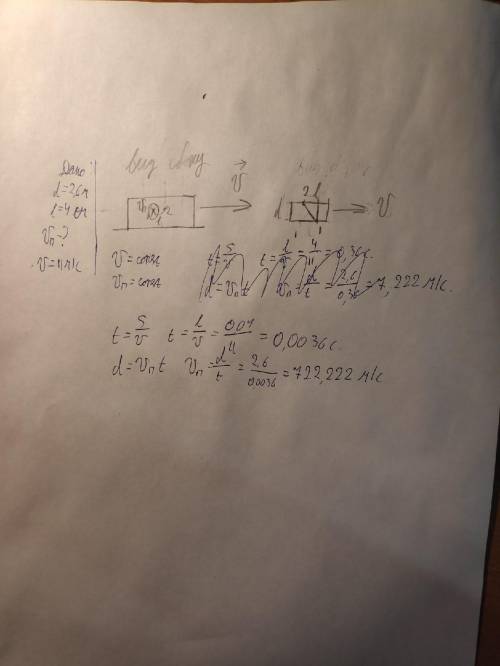 Дано
d=2,6м
l=4 см
Vп-?
V=11м/с
вид сбоку
V
Vп
d
l
V
V=const
Vп=const
t=S/V t=l/V=4/11=0,36с.
d=Vп t Vп=d/t=2,6/0,36=7,222 м/с.
t=S/V t=l/V=0,04/11=0,0036с.
d=Vп t Vп=d/t=2,6/0,0036=722,222 м/с